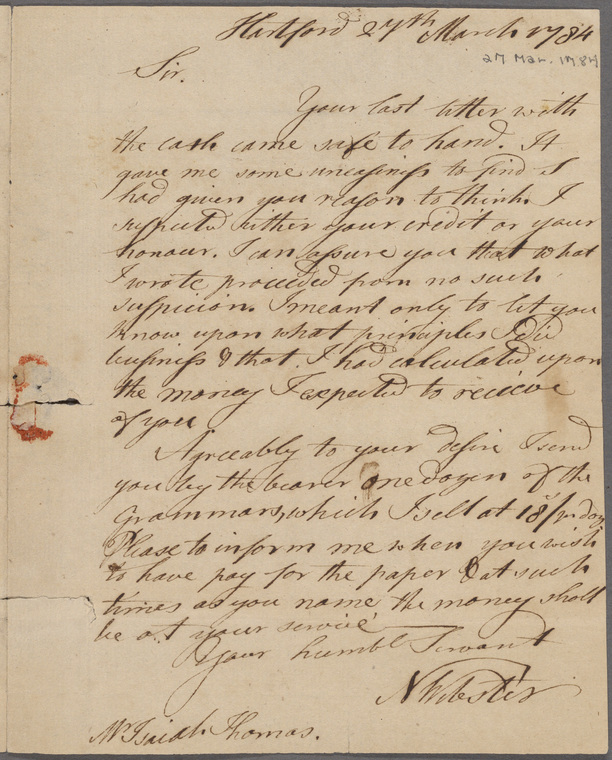 Hartford 27th March 1784
27 Mar. 1784
Sir.
Your last letter with
the cash came safe to hand. It
gave me some uneasiness to find I
had given you reason to think I
suspected either your credit or your
honour. I can assure you that what
I wrote proceeded from no such
suspicion. I meant only to let you
know upon what principles I did
business & that I had calculated upon
the money I expected to recieve
of you
Agreeably to your desire I send
you by the bearer one dozen of the
Grammars, which I sell at 18/ pr doz
Please to inform me when you wish
to have pay for the paper & at such
times as you name the money shall
be at your service
Your humbl Servant
N Webster
Mr Isaiah Thomas.